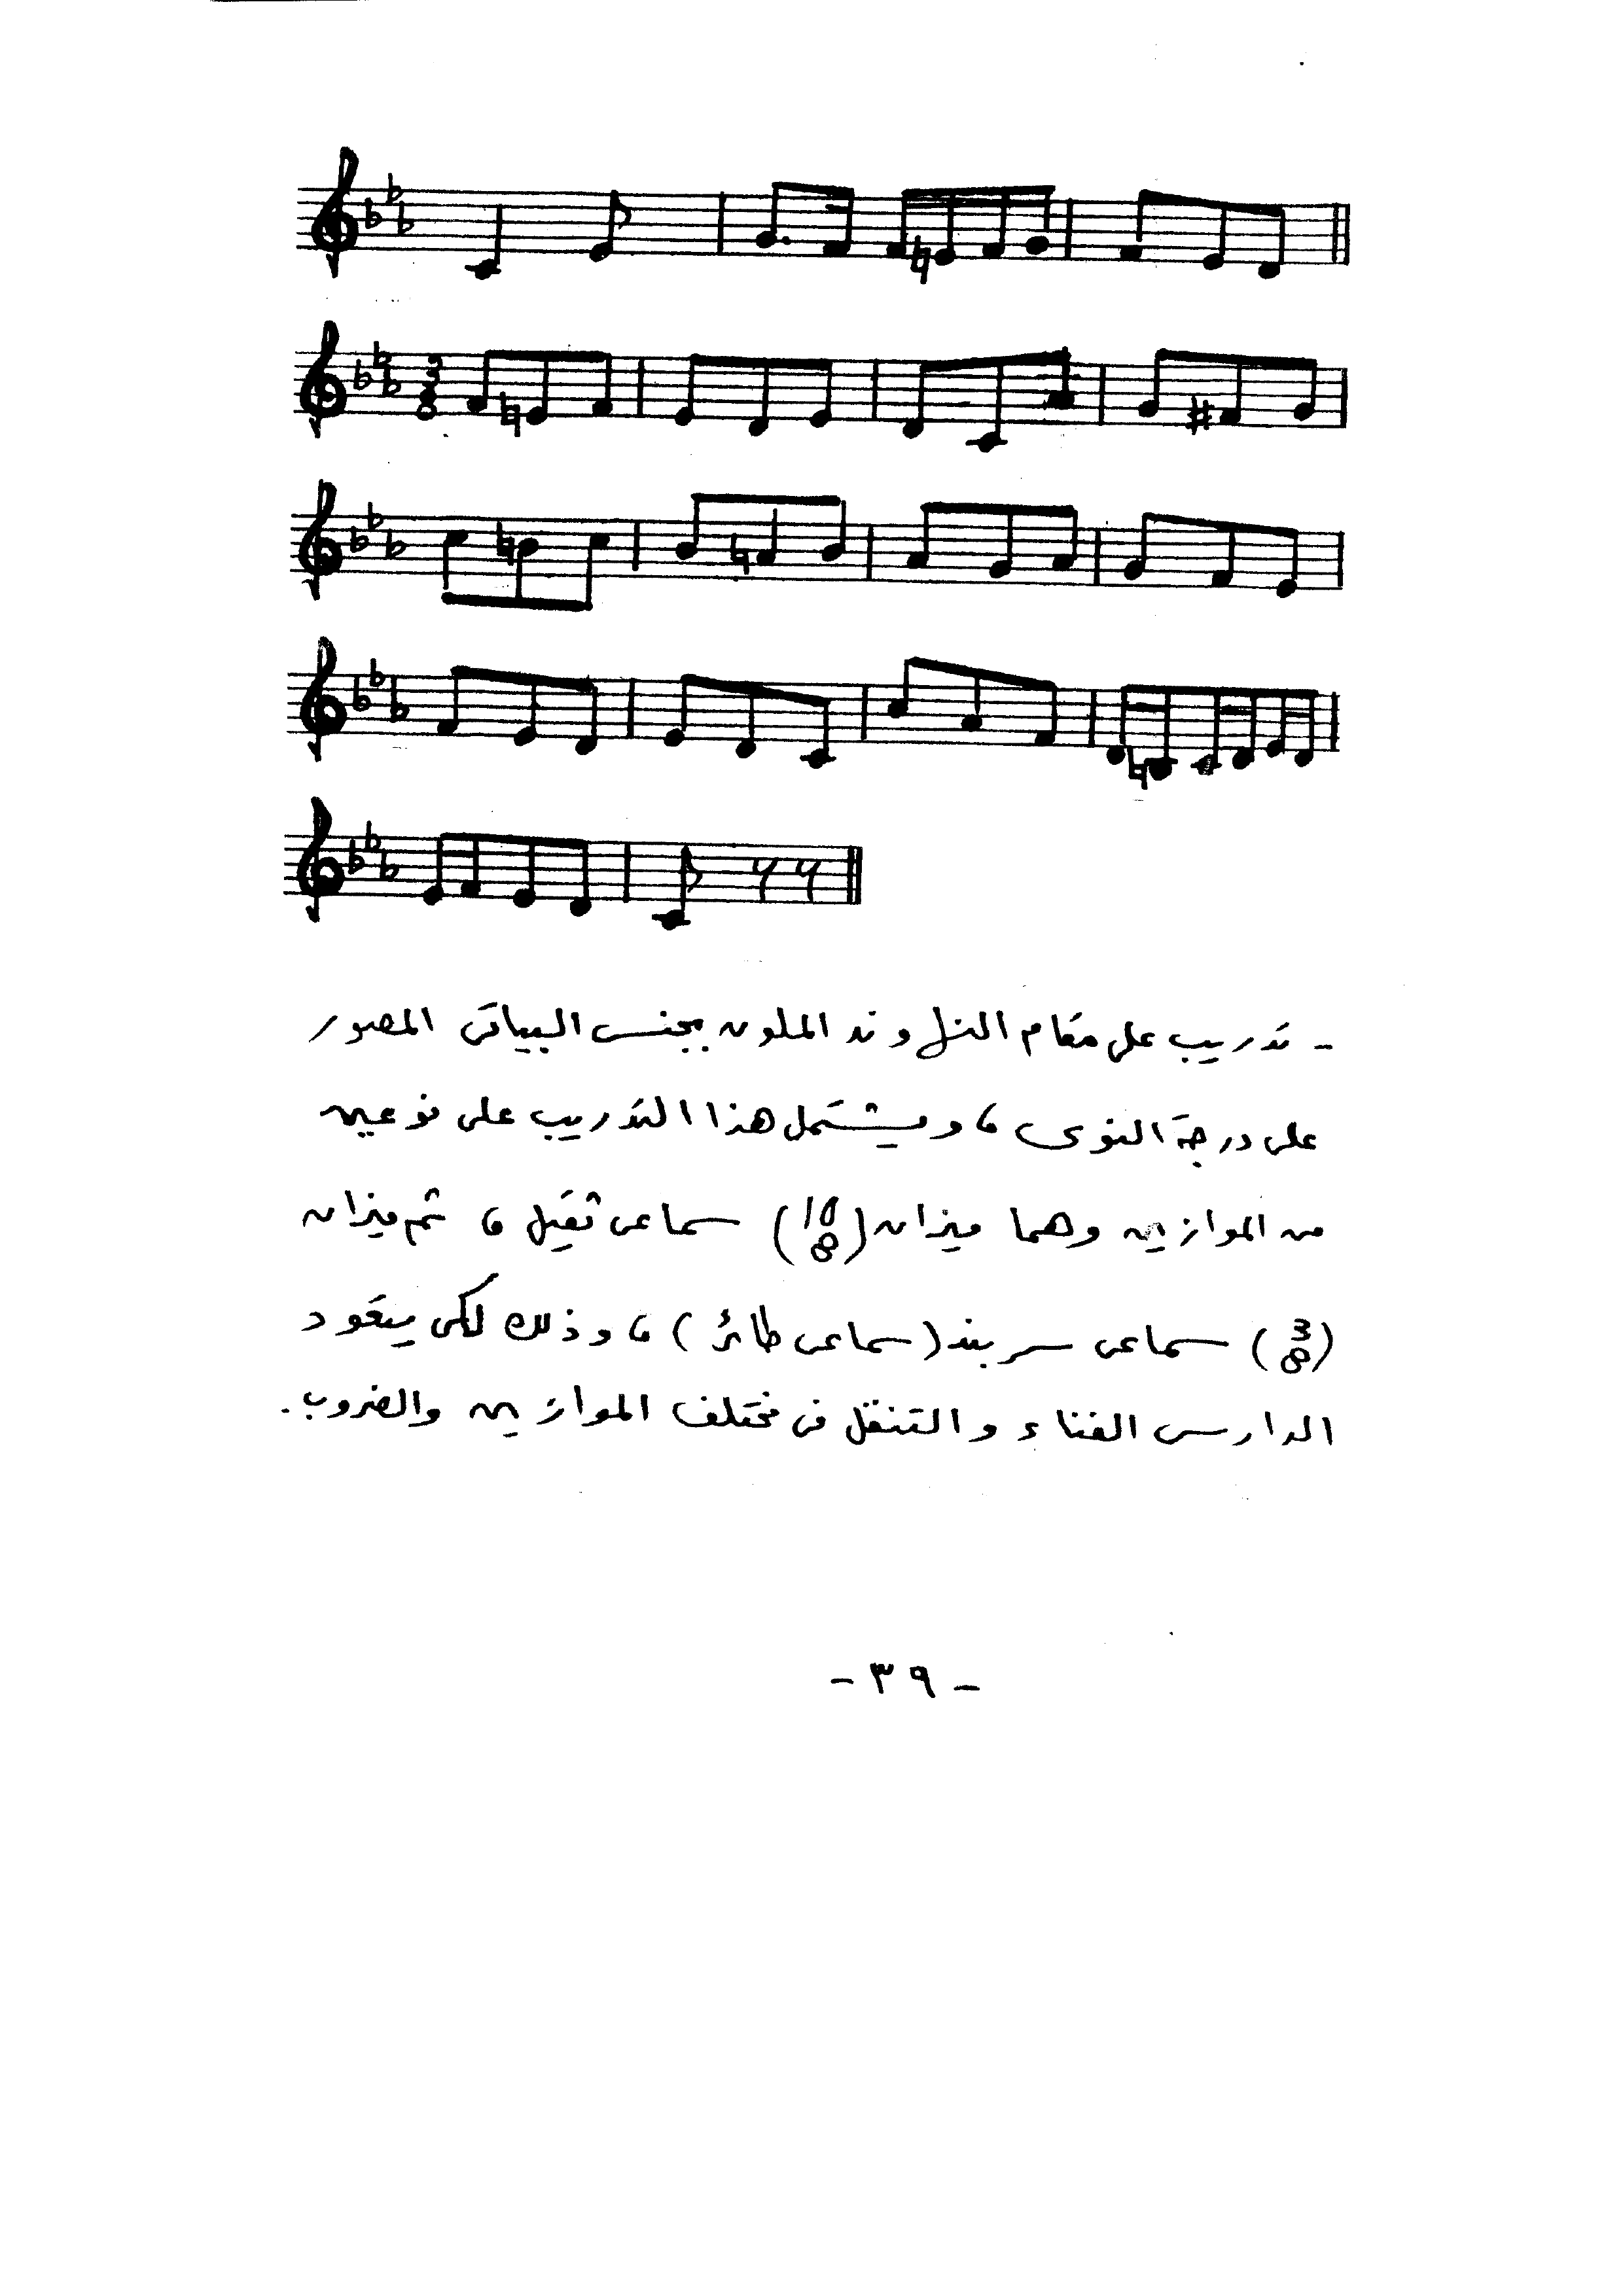 3
8
- تدريب على مقام النهاوند الملون بجنس البياتى المصور
على درجة النوى ، ويشتمل هذا التدريب على نوعين
من الموازين وهما ميزان (10/8) سماعى ثقيل ، ثم ميزان
(3/8) سماعى سربند (سماعى طائر) ، وذلك لكى يتعود
الدارس الغناء والتنقل فى مختلف الموازين والضروب .
- ٣٩ -